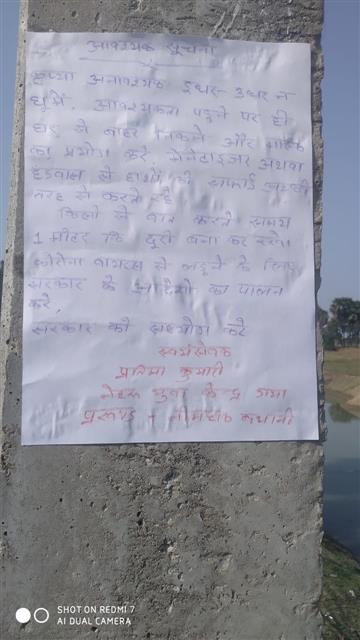 आवश्यक सूचना
कृप्या अनावश्यक इधर-उधर न
घुमें. आवश्यकता पड़ने पर ही
घर से बाहर निकले और मास्क
का प्रयोग करे. सेनेटाइजर अथवा
हंडवास से हाथों की सफाई अच्छी
तरह से करते रहे
किसी से बात करते समय
1 मीटर कि दुरी बना कर रखे।
कोरोना वायरस से लड़ने के लिए
सरकार के आदेशो का पालन
करे,
सरकार को सहयोग करे
स्वयंसेवक
प्रतिमा कुमारी
नेहरू युवा केन्द्र गया
प्रखण्ड - नीमचक बथानी
SHOT ON REDMI 7
AI DUAL CAMERA